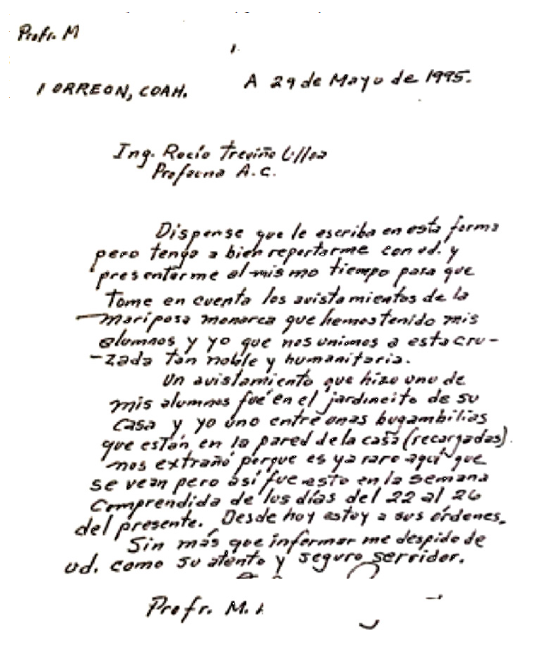 Profr. M
TORREON, COAH. A 29 de Mayo de 1995.
Ing. Rocío Treviño Ulloa
Profauna A.C.
Dispense que le escriba en esta forma
pero tengo a bien reportarme con ud. y
presentarme al mismo tiempo para que
tome en cuenta los avistamientos de la
mariposa monarca que hemos tenido mis
alumnos y yo que nos unimos a esta cru-
-zada tan noble y humanitaria.
Un avistamiento que hizo uno de
mis alumnos fué en el jardincito de su
casa y yo uno entre unas bugambilias
que están en la pared de la casa (recargadas).
nos extrañó porque es ya raro aquí que
se vean pero así fue esto en la semana
comprendida de los días del 22 al 26
del presente. Desde hoy estoy a sus órdenes.
Sin más que informar me despido de
ud. como su atento y seguro servidor.
Profr. M.